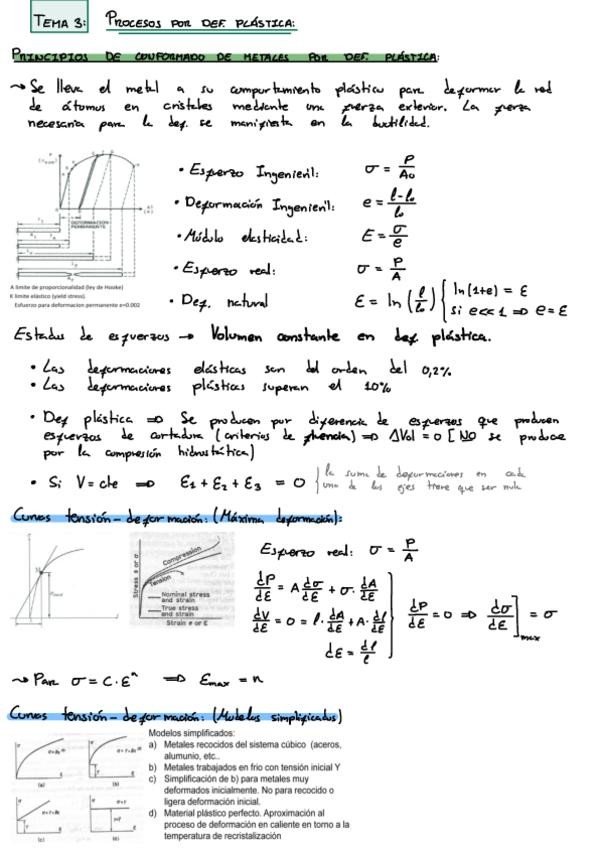 TEMA 3: PROCESOS POR DEF. PLÁSTICA:
PRINCIPIOS DE CONFORMADO DE METALES POR DEF. PLÁSTICA:
→ Se lleva el metal a su comportamiento plástico para deformar la red
de átomos en cristales mediante una fuerza exterior. La fuerza
necesaria para la def. se manifiesta en la ductilidad.
DEFORMACION
PERMANENTE
A limite de proporcionalidad (ley de Hooke)
K limite elástico (yield stress).
Esfuerzo para deformacion permanente e=0.002
• Esfuerzo Ingenieril: σ = P/A₀
• Deformación Ingenieril: e = (l-l₀)/l₀
• Módulo elasticidad: E = σ/e
• Esfuerzo real: σ = P/A
• Def. natural ε = ln (l/l₀) { ln(1+e) = ε
si e<<1 ⇒ e = ε
Estados de esfuerzos → Volumen constante en def. plástica.
• Las deformaciones elásticas son del orden del 0,2%
• Las deformaciones plásticas superan el 10%
• Def plástica ⇒ Se producen por diferencia de esfuerzos que producen
esfuerzos de cortadura (criterios de fluencia) ⇒ ΔVol = 0 [NO se produce
por la compresión hidrostática]
• Si V = cte ⇒ ε₁ + ε₂ + ε₃ = 0 { la suma de deformaciones en cada
uno de los ejes tiene que ser nula
Curvas tensión-deformación: (Máxima deformación):
Stress s or σ
Compression
Tension
Nominal stress
and strain
True stress
and strain
Strain e or ε
Esfuerzo real: σ = P/A
dP/dε = A dσ/dε + σ · dA/dε
dV/dε = 0 = l · dA/dε + A · dl/dε
dε = dl/l
dP/dε = 0 ⇒ dσ/dε]max = σ
→ Para σ = C · εⁿ ⇒ εmax = n
Curvas tensión-deformación: (Modelos simplificados)
(a)
(b)
(c)
(d)
Modelos simplificados:
a) Metales recocidos del sistema cúbico (aceros,
alumunio, etc..
b) Metales trabajados en frio con tensión inicial Y
c) Simplificación de b) para metales muy
deformados inicialmente. No para recocido o
ligera deformación inicial.
d) Material plástico perfecto. Aproximación al
proceso de deformación en caliente en torno a la
temperatura de recristalización